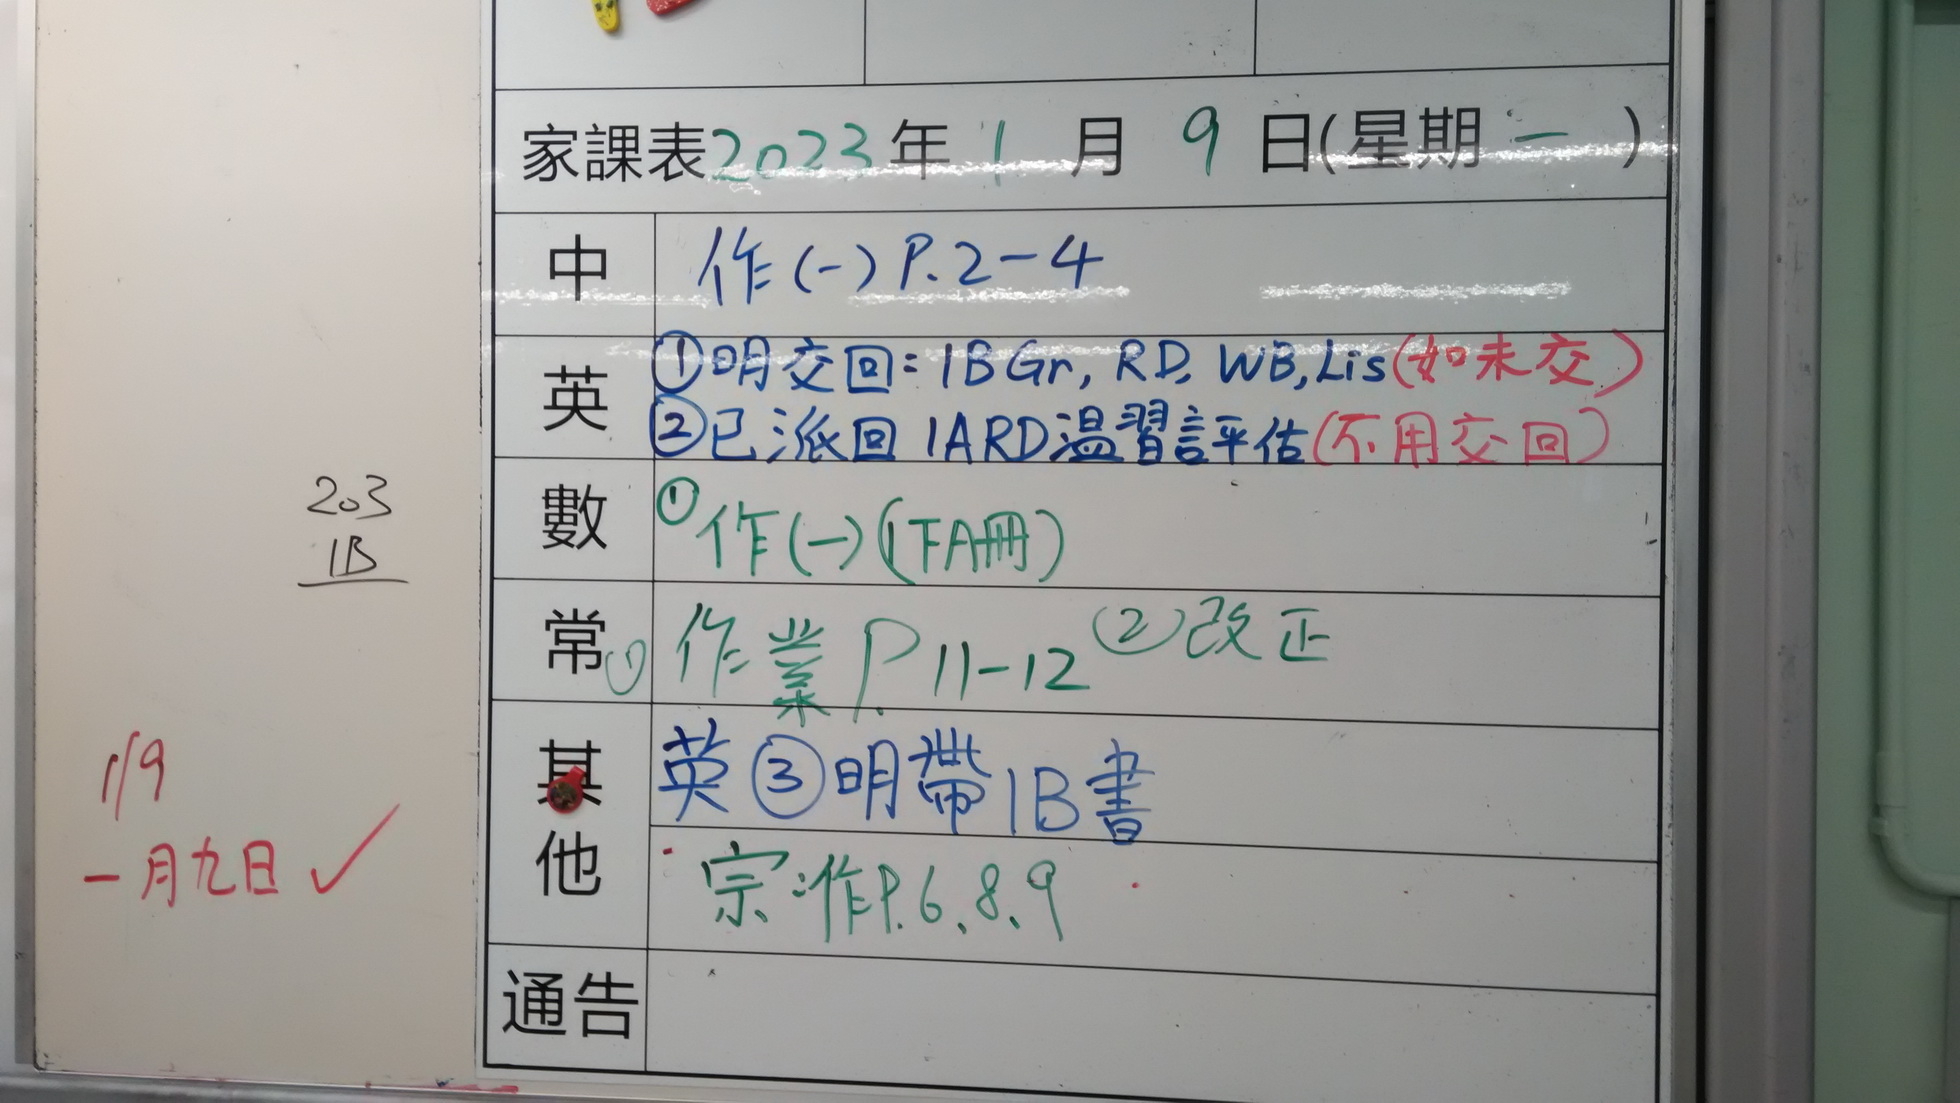 家課表2023年1月9日(星期一)
中 作(一)P.2-4
英 ①明交回:1BGr, RD, WB, Lis(如未交)
②已派回1ARD溫習評估(不用交回)
數 ①作(一)(1下A冊)
常 ①作業P.11-12 ②改正
其他 英③明帶1B書
宗:作P.6、8、9
通告
203
1B
1/9
一月九日✓